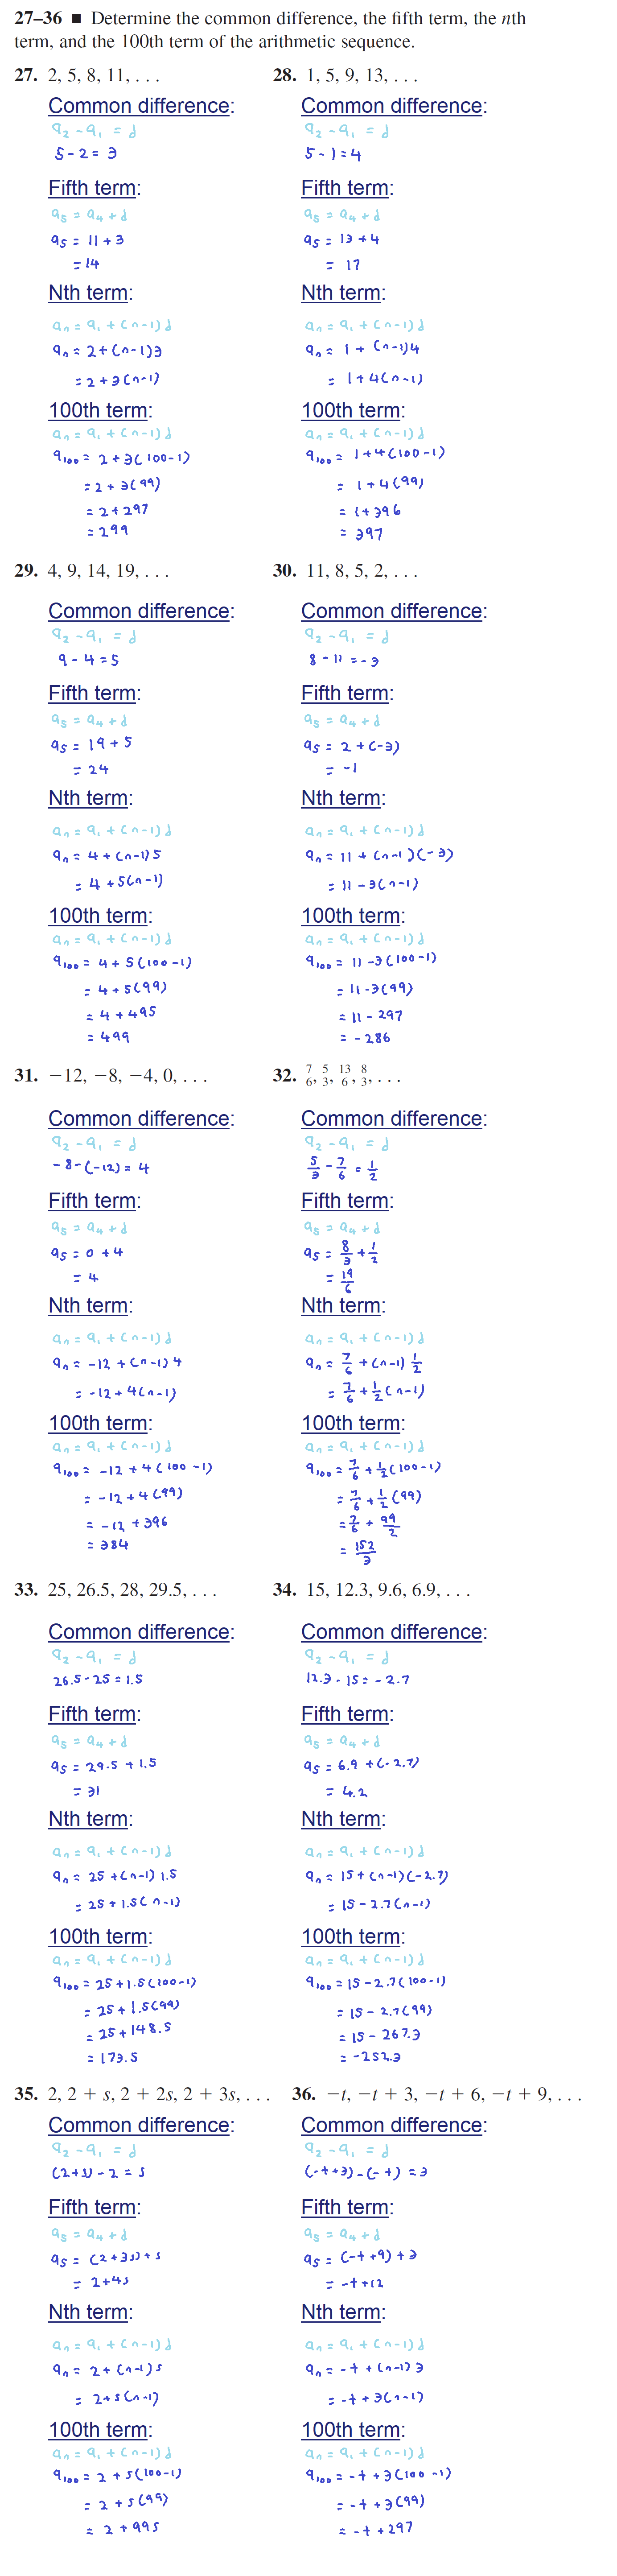 27–36 ■ Determine the common difference, the fifth term, the nth
term, and the 100th term of the arithmetic sequence.
27. 2, 5, 8, 11, . . .
Common difference:
a₂ - a₁ = d
5 - 2 = 3
Fifth term:
a₅ = a₄ + d
a₅ = 11 + 3
= 14
Nth term:
aₙ = a₁ + (n-1)d
aₙ = 2 + (n-1)3
= 2 + 3(n-1)
100th term:
aₙ = a₁ + (n-1)d
a₁₀₀ = 2 + 3(100-1)
= 2 + 3(99)
= 2 + 297
= 299
28. 1, 5, 9, 13, . . .
Common difference:
a₂ - a₁ = d
5 - 1 = 4
Fifth term:
a₅ = a₄ + d
a₅ = 13 + 4
= 17
Nth term:
aₙ = a₁ + (n-1)d
aₙ = 1 + (n-1)4
= 1 + 4(n-1)
100th term:
aₙ = a₁ + (n-1)d
a₁₀₀ = 1 + 4(100-1)
= 1 + 4(99)
= 1 + 396
= 397
29. 4, 9, 14, 19, . . .
Common difference:
a₂ - a₁ = d
9 - 4 = 5
Fifth term:
a₅ = a₄ + d
a₅ = 19 + 5
= 24
Nth term:
aₙ = a₁ + (n-1)d
aₙ = 4 + (n-1)5
= 4 + 5(n-1)
100th term:
aₙ = a₁ + (n-1)d
a₁₀₀ = 4 + 5(100-1)
= 4 + 5(99)
= 4 + 495
= 499
30. 11, 8, 5, 2, . . .
Common difference:
a₂ - a₁ = d
8 - 11 = -3
Fifth term:
a₅ = a₄ + d
a₅ = 2 + (-3)
= -1
Nth term:
aₙ = a₁ + (n-1)d
aₙ = 11 + (n-1)(-3)
= 11 - 3(n-1)
100th term:
aₙ = a₁ + (n-1)d
a₁₀₀ = 11 - 3(100-1)
= 11 - 3(99)
= 11 - 297
= -286
31. −12, −8, −4, 0, . . .
Common difference:
a₂ - a₁ = d
-8 - (-12) = 4
Fifth term:
a₅ = a₄ + d
a₅ = 0 + 4
= 4
Nth term:
aₙ = a₁ + (n-1)d
aₙ = -12 + (n-1)4
= -12 + 4(n-1)
100th term:
aₙ = a₁ + (n-1)d
a₁₀₀ = -12 + 4(100-1)
= -12 + 4(99)
= -12 + 396
= 384
32. 7/6, 5/3, 13/6, 8/3, . . .
Common difference:
a₂ - a₁ = d
5/3 - 7/6 = 1/2
Fifth term:
a₅ = a₄ + d
a₅ = 8/3 + 1/2
= 19/6
Nth term:
aₙ = a₁ + (n-1)d
aₙ = 7/6 + (n-1) 1/2
= 7/6 + 1/2(n-1)
100th term:
aₙ = a₁ + (n-1)d
a₁₀₀ = 7/6 + 1/2(100-1)
= 7/6 + 1/2(99)
= 7/6 + 99/2
= 152/3
33. 25, 26.5, 28, 29.5, . . .
Common difference:
a₂ - a₁ = d
26.5 - 25 = 1.5
Fifth term:
a₅ = a₄ + d
a₅ = 29.5 + 1.5
= 31
Nth term:
aₙ = a₁ + (n-1)d
aₙ = 25 + (n-1)1.5
= 25 + 1.5(n-1)
100th term:
aₙ = a₁ + (n-1)d
a₁₀₀ = 25 + 1.5(100-1)
= 25 + 1.5(99)
= 25 + 148.5
= 173.5
34. 15, 12.3, 9.6, 6.9, . . .
Common difference:
a₂ - a₁ = d
12.3 - 15 = -2.7
Fifth term:
a₅ = a₄ + d
a₅ = 6.9 + (-2.7)
= 4.2
Nth term:
aₙ = a₁ + (n-1)d
aₙ = 15 + (n-1)(-2.7)
= 15 - 2.7(n-1)
100th term:
aₙ = a₁ + (n-1)d
a₁₀₀ = 15 - 2.7(100-1)
= 15 - 2.7(99)
= 15 - 267.3
= -252.3
35. 2, 2 + s, 2 + 2s, 2 + 3s, . . .
Common difference:
a₂ - a₁ = d
(2+s) - 2 = s
Fifth term:
a₅ = a₄ + d
a₅ = (2+3s) + s
= 2+4s
Nth term:
aₙ = a₁ + (n-1)d
aₙ = 2 + (n-1)s
= 2+s(n-1)
100th term:
aₙ = a₁ + (n-1)d
a₁₀₀ = 2 + s(100-1)
= 2 + s(99)
= 2 + 99s
36. −t, −t + 3, −t + 6, −t + 9, . . .
Common difference:
a₂ - a₁ = d
(-t+3) - (-t) = 3
Fifth term:
a₅ = a₄ + d
a₅ = (-t+9) + 3
= -t+12
Nth term:
aₙ = a₁ + (n-1)d
aₙ = -t + (n-1)3
= -t + 3(n-1)
100th term:
aₙ = a₁ + (n-1)d
a₁₀₀ = -t + 3(100-1)
= -t + 3(99)
= -t + 297